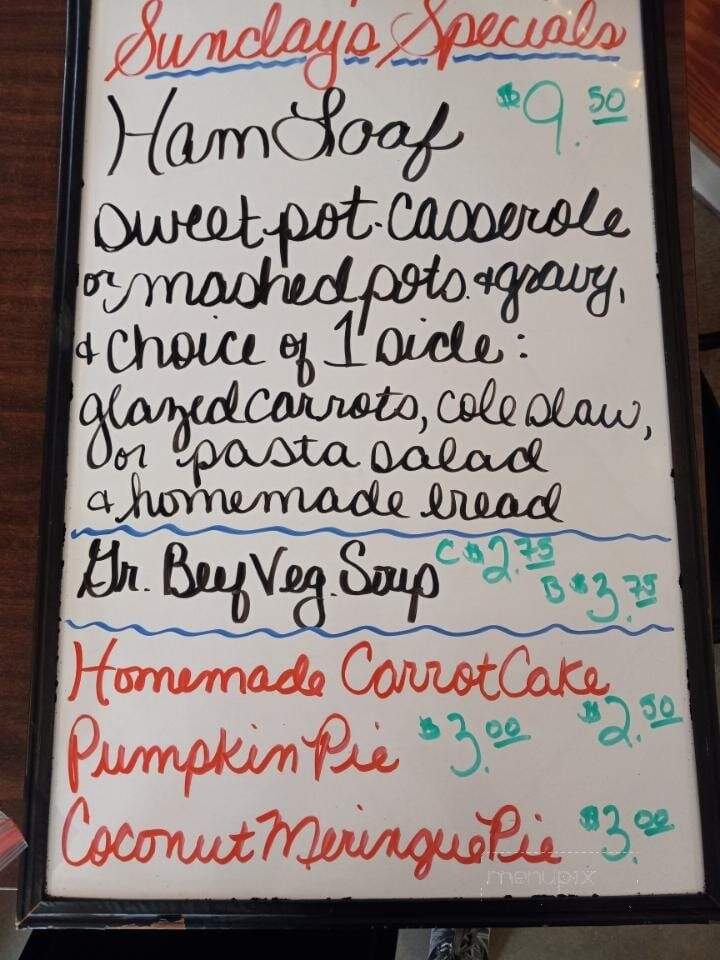 Sunday's Specials
Ham Loaf $9.50
sweet pot. casserole
or mashed pots. & gravy,
& choice of 1 side:
glazed carrots, cole slaw,
or pasta salad
& homemade bread
Gr. Beef Veg. Soup C $2.75
B $3.75
Homemade Carrot Cake
$2.50
Pumpkin Pie $3.00
Coconut Meringue Pie $3.00
menupix